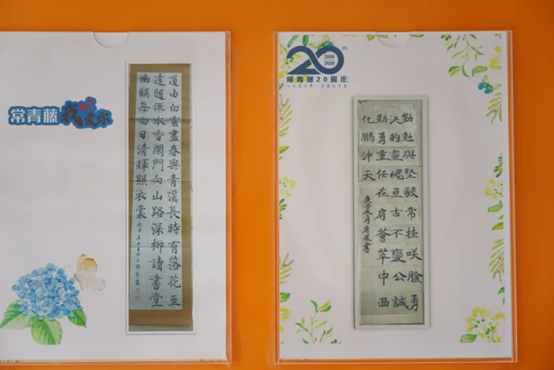 常青藤我爱你
道由白雲盡春與青谿長時有落花至
遠隨流水香閑門向山路深柳讀書堂
幽映每白日清輝照衣裳
20th
2000
2020
常青藤20周年
勤勉與堅毅常挂咲臉勇
決的靈魂亙古不變公誠
勤勇重任在肩薈萃中西
化鵬沖天